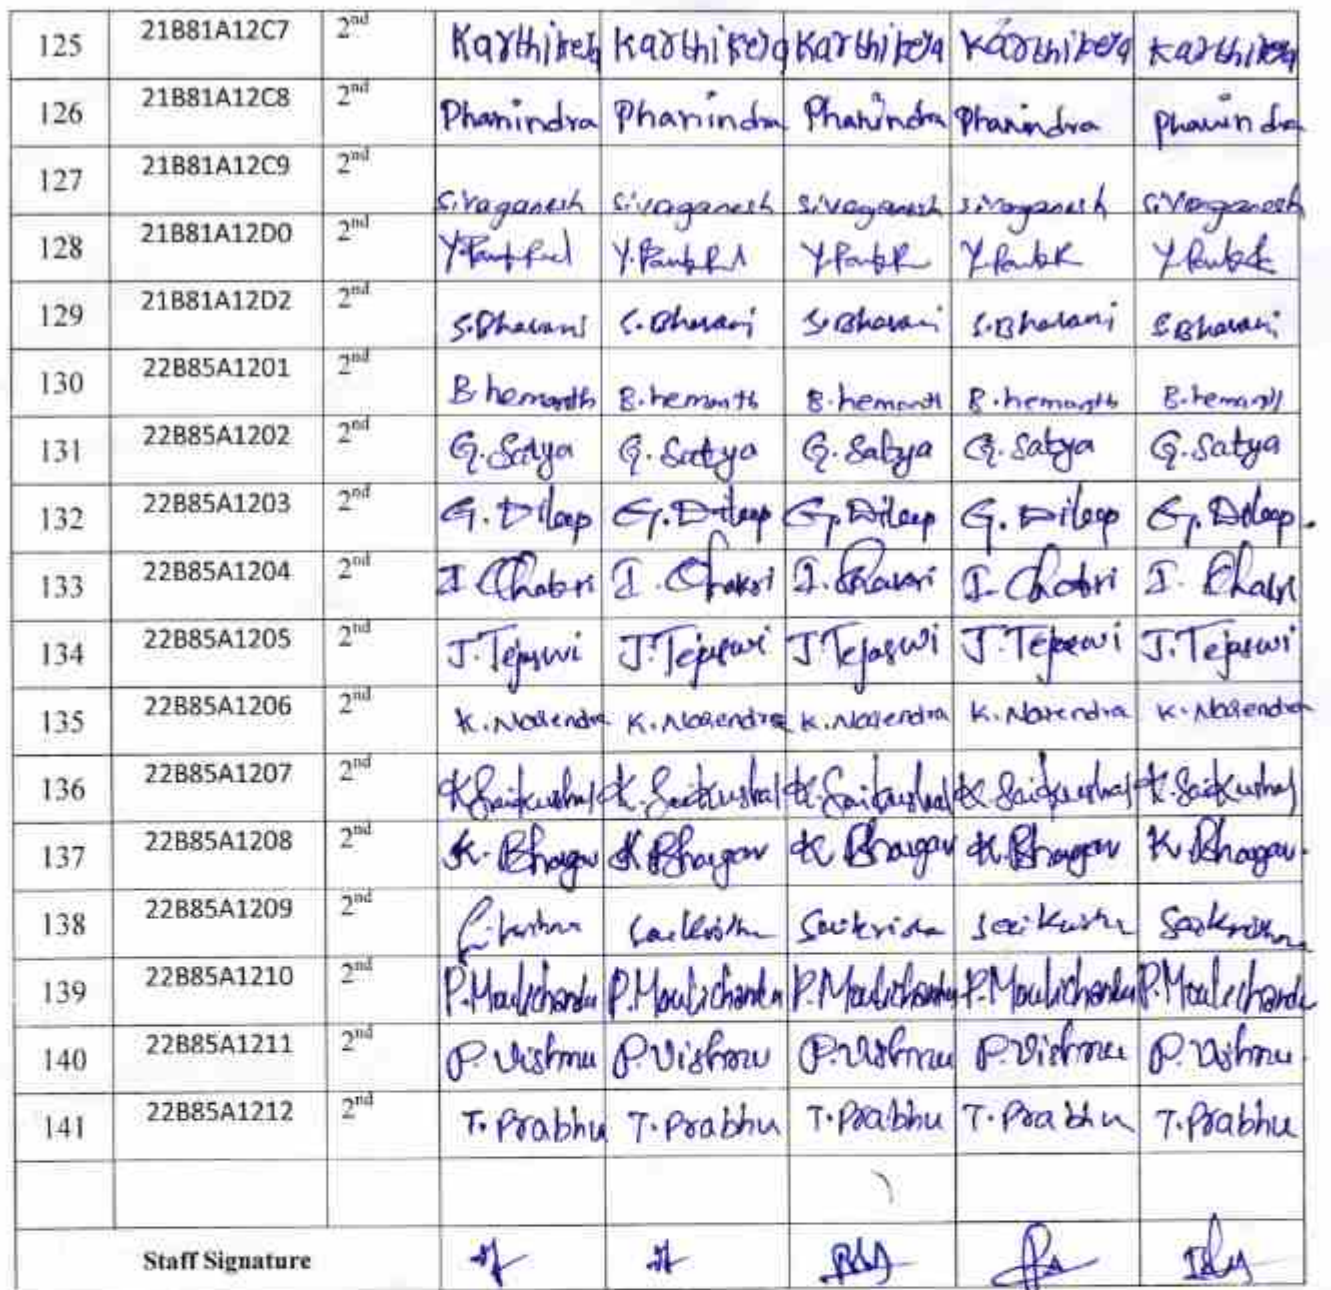 125 21B81A12C7 2nd Karthikeya Karthikeya Karthikeya Karthikeya Karthikeya
126 21B81A12C8 2nd Phanindra Phanindra Phanindra Phanindra Phanindra
127 21B81A12C9 2nd Sivaganesh Sivaganesh Sivaganesh Sivaganesh Sivaganesh
128 21B81A12D0 2nd
129 21B81A12D2 2nd S.Bharani S.Bharani S.Bharani S.Bharani S.Bharani
130 22B85A1201 2nd B.hemanth B.hemanth B.hemanth B.hemanth B.hemanth
131 22B85A1202 2nd G.Satya G.Satya G.Satya G.Satya G.Satya
132 22B85A1203 2nd G.Dileep G.Dileep G.Dileep G.Dileep G.Dileep.
133 22B85A1204 2nd
134 22B85A1205 2nd J.Tejaswi J.Tejaswi J.Tejaswi J.Tejaswi J.Tejaswi
135 22B85A1206 2nd K.Narendra K.Narendra K.Narendra K.Narendra K.Narendra
136 22B85A1207 2nd K.Saikushal K.Saikushal K.Saikushal K.Saikushal K.Saikushal
137 22B85A1208 2nd K.Bhargav K.Bhargav K.Bhargav K.Bhargav K.Bhargav.
138 22B85A1209 2nd Saikrishna Saikrishna Saikrishna Saikrishna
139 22B85A1210 2nd P.Moulichandu P.Moulichandu P.Moulichandu P.Moulichandu P.Moulichandu
140 22B85A1211 2nd P.Vishnu P.Vishnu P.Vishnu P.Vishnu P.Vishnu.
141 22B85A1212 2nd T.Prabhu T.Prabhu T.Prabhu T.Prabhu T.Prabhu
Staff Signature